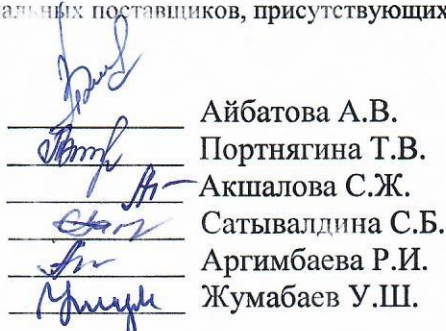 альных поставщиков, присутствующих
Айбатова А.В.
Портнягина Т.В.
Акшалова С.Ж.
Сатывалдина С.Б.
Аргимбаева Р.И.
Жумабаев У.Ш.